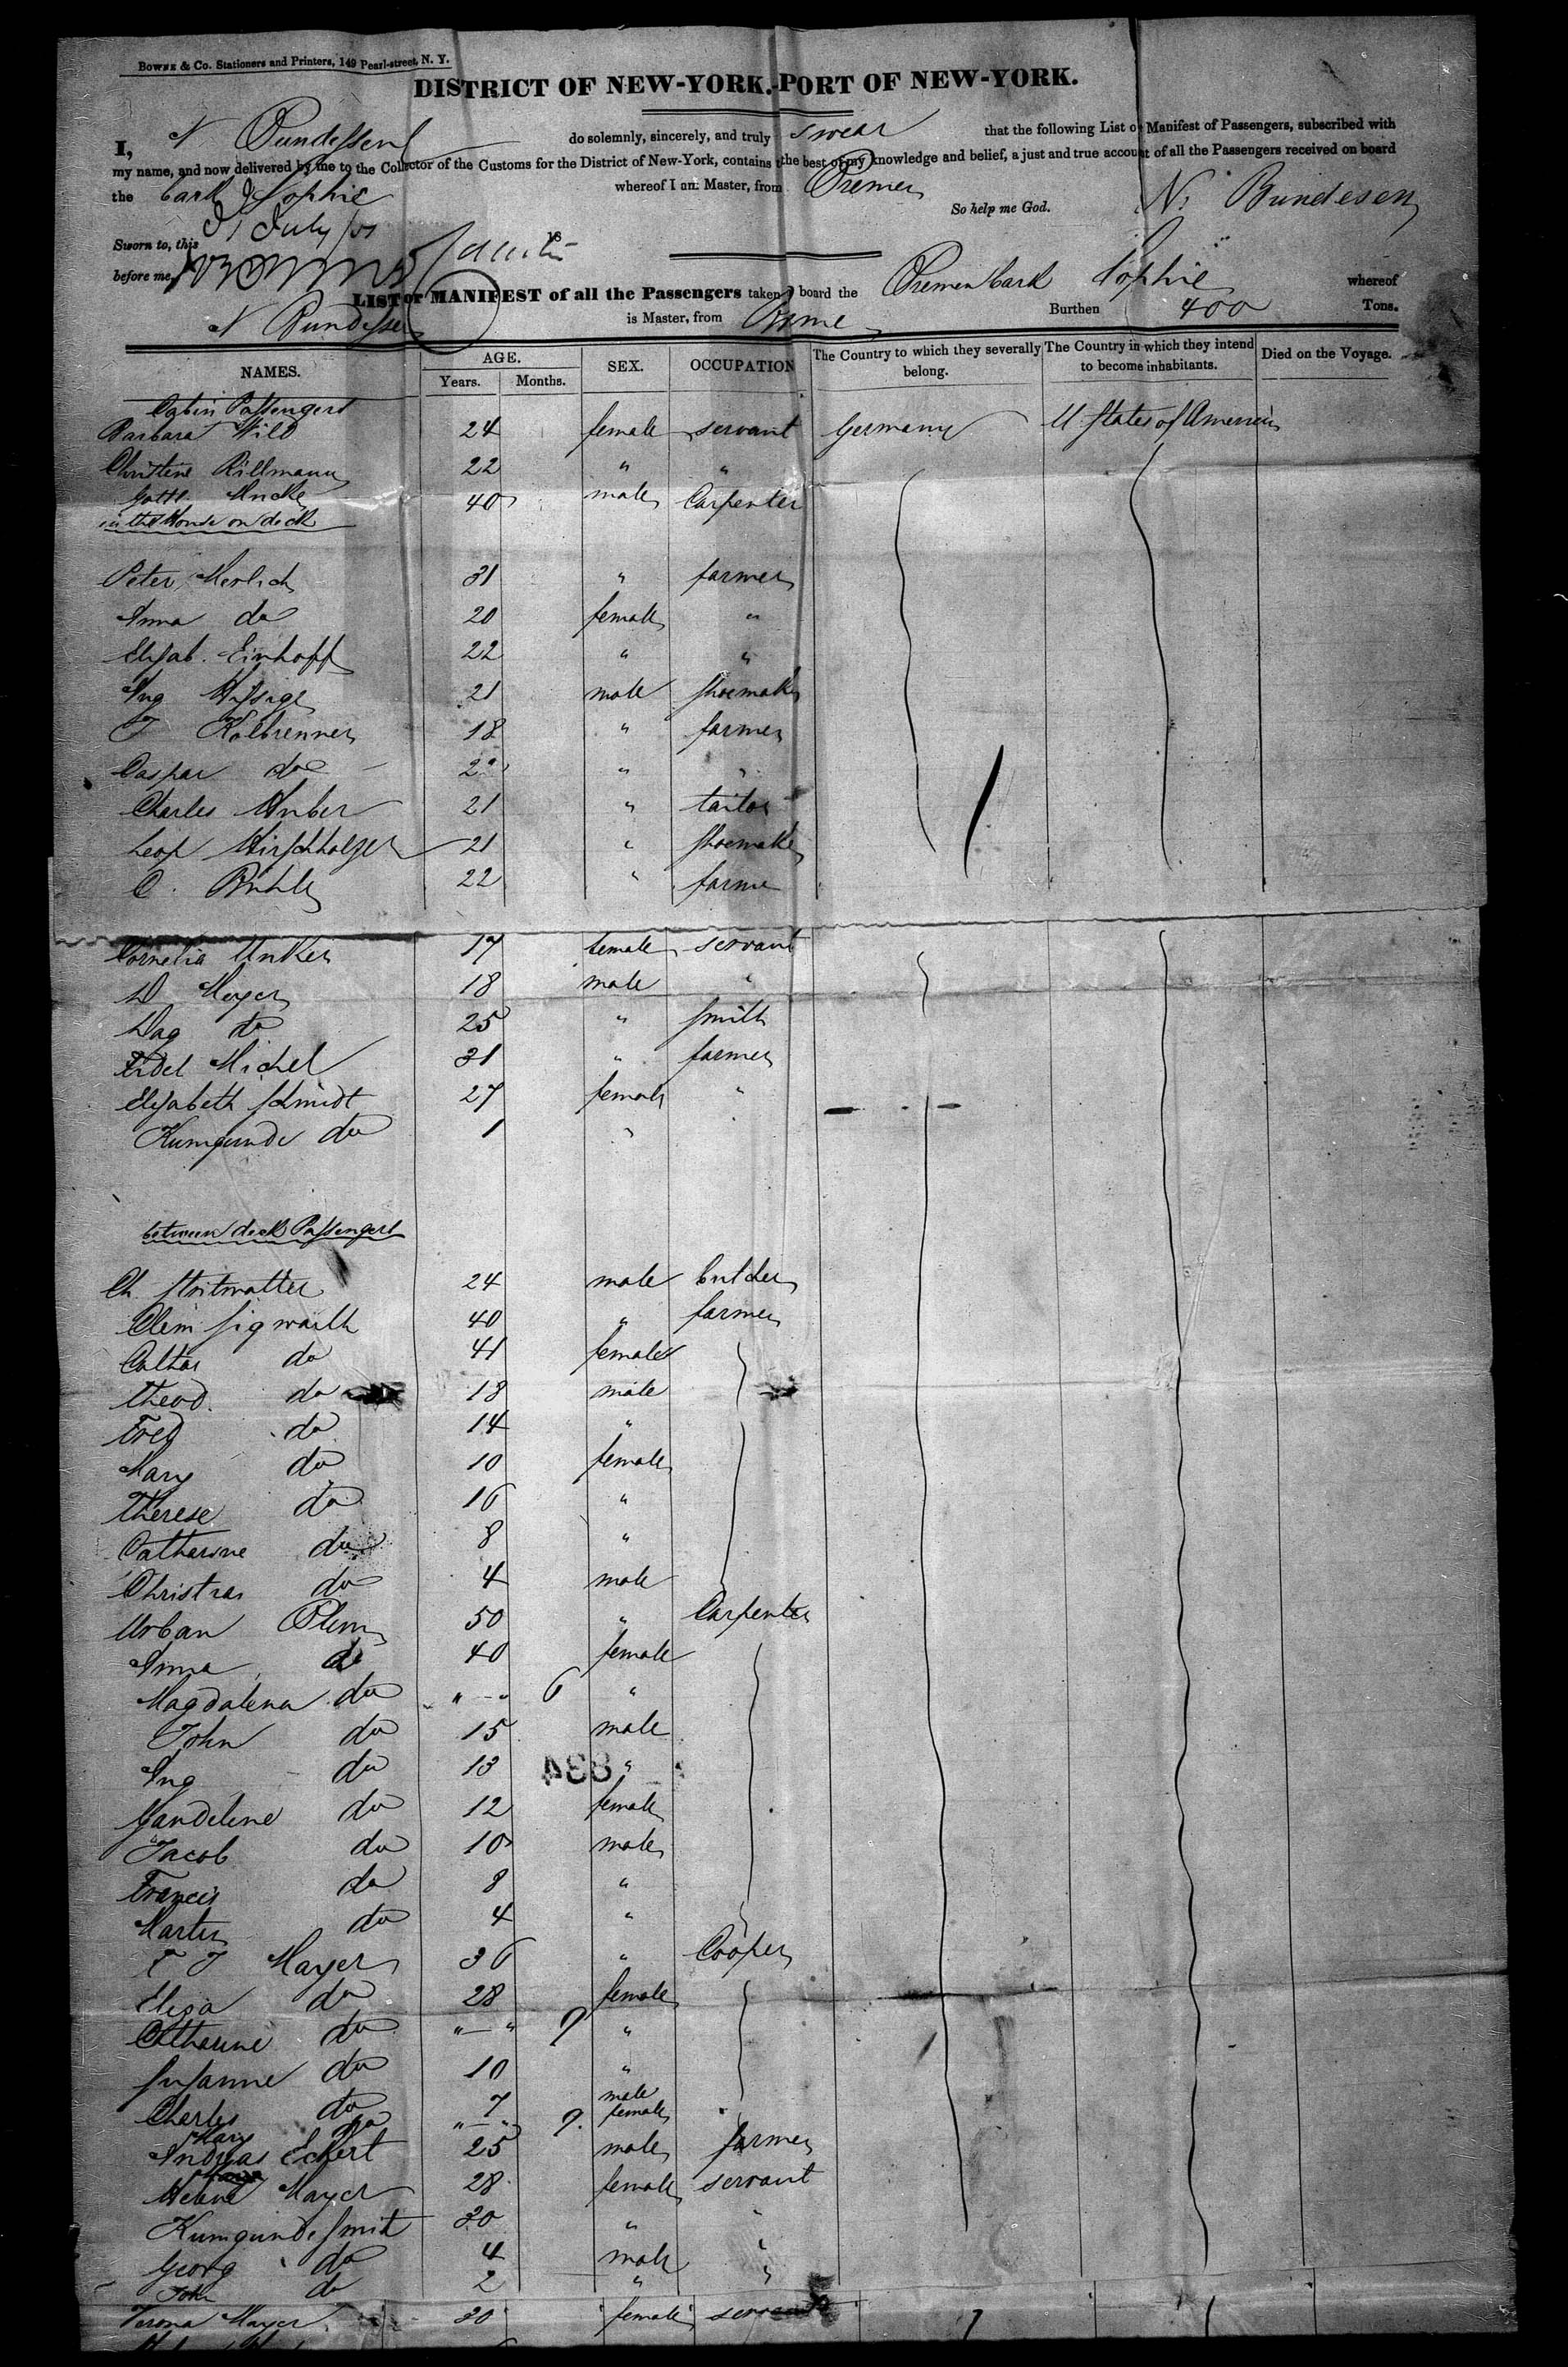 BOWNE & Co. Stationers and Printers, 149 Pearl-street, N. Y.
DISTRICT OF NEW-YORK.-PORT OF NEW-YORK.
I, N Bundessen do solemnly, sincerely, and truly swear that the following List or Manifest of Passengers, subscribed with
my name, and now delivered by me to the Collector of the Customs for the District of New-York, contains the best of my knowledge and belief, a just and true account of all the Passengers received on board
the bark Sophie whereof I am Master, from Bremen
So help me God. N. Bundesen
Sworn to, this 31 July 18
before me,
LIST or MANIFEST of all the Passengers taken board the Bremen bark Sophie whereof
N Bundessen is Master, from Breme Burthen 400 Tons.
NAMES. AGE. Years. Months. SEX. OCCUPATION The Country to which they severally belong. The Country in which they intend to become inhabitants. Died on the Voyage.
Cabin Passengers
Barbara Wild 24 female servant Germany U States of America
Christine Rillmann 22 " "
Gottl. 40 male Carpenter
in the House on deck
Peter Merlich 31 " farmer
Anna do 20 female "
Elisab. Einhoff 22 " "
Aug 21 male shoemaker
T Kolbrenner 18 " farmer
Caspar do " "
Charles Huber 21 " tailor
Leop Hirschholzer 21 " shoemaker
C. 22 " farme
Cornelia Unker 17 female servant
D Meyer 18 male "
do 25 " smith
Fidel Michel 31 " farmer
Elisabeth Schmidt 27 female "
Kumgunde do 1 "
between deck Passengers
Ch. Stritmatter 24 male butcher
Clem Sigwarth 40 " farmer
do 41 female
Theod. do 18 male
Fred do 14 "
Mary do 10 female
Therese do 16 "
Catharine do 8 "
do 4 male
Urban Blum 50 " Carpenter
Anna do 40 female
Magdalena do " - " 6 "
John do 15 male
Aug do 13 "
834
do 12 female
Jacob do 10 male
Francis do 8 "
Martin do 4 "
F J Mayer 36 " Cooper
Elisa do 28 female
Catharine do " - " 9 "
Susanne do 10 "
Charles do 7 male
Mary do " - " 9. female
Andreas Eckert 25 male farmer
Helene Mayer 28 female servant
Kumgunde Smit 30 " "
Georg do 4 male "
John do 2 " "
Verona Mayer 30 female servant